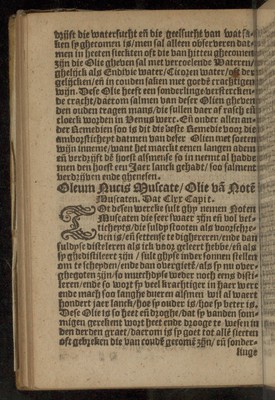 drijft die watersucht eñ die geelsucht van wat sa-
ken sy ghecomen is/men sal allen observeren dat-
men in heeten siecten oft die van hitten ghecomen
zijn die Olie gheven sal met vercoelende Wateren/
ghelijck als Endivie water/Citozen water/ der
gelijcken/eñ in couden saken met goedē crachtigen
wijn. Dese Olie heeft een sonderlinge verstercken-
de cracht/daerom salmen van deser Olien gheven
den ouden teagen mans/die sullen daer af rasch eñ
cloeck worden in Venus werc. Eñ onder allen an-
der Remedien soo is dit die beste Remedie voor die
amborsticheyt datmen van deser Olien met soeten
wijn inneme/want het maeckt eenen langen adem
eñ verdrijft dē hoest alsmense so in neemt al hadde
men den hoest een Jaer lanck gehadt/soo salment
verdrijven ende ghenesen.
Oleum Nucis Muscate/Olie vā Notē
Muscaten. Dat Cap.
TOt desen wercke sult ghy nemen Noten
Muscaten die seer swaer zijn eñ vol vet-
ticheyts/die suldy stooten als voorschre-
ven is/eñ setense te dighereren/ende dan
suldyse distileren als ick u voor geleert hebbe/eñ als
sy ghedistileert zijn/sult ghyse inder sonnen stellen
om te scheyden/ende dan overgiet/als sy nu over-
ghegoten zijn/so mueghdyse weder noch eens disti-
leren/ende so wort sy veel krachtiger in haer werc
ende mach soo langhe dueren alsmen wil al waert
hondert jaer lanck/hoe sy ouder is hoe sy beter is.
Dese Olie is so heet eñ drooghe/dat sy vanden som-
migen gerekent wort heet ende drooge te wesen in
den derden graet/daerom is sy goet tot alle siecten
oft gebreken die van coudē gecomē zijn/eñ sonder-
linge